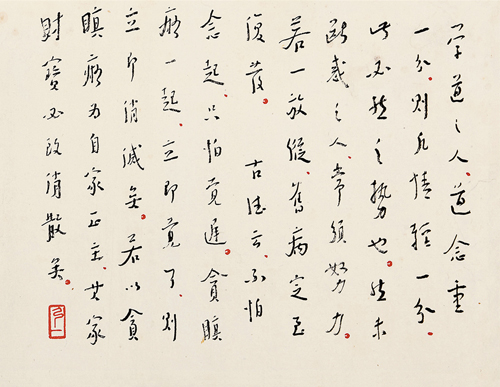 学道之人。道念重
一分。則凡情輕一分。
此必然之勢也。然未
断惑之人。常須努力。
若一放縱。舊病定至
復發。古德云。不怕
念起。只怕覚遲。貪瞋
痴一起。立即覚了。則
立即消滅矣。若以貪
瞋痴为自家正主。其家
財寶必致消散矣。